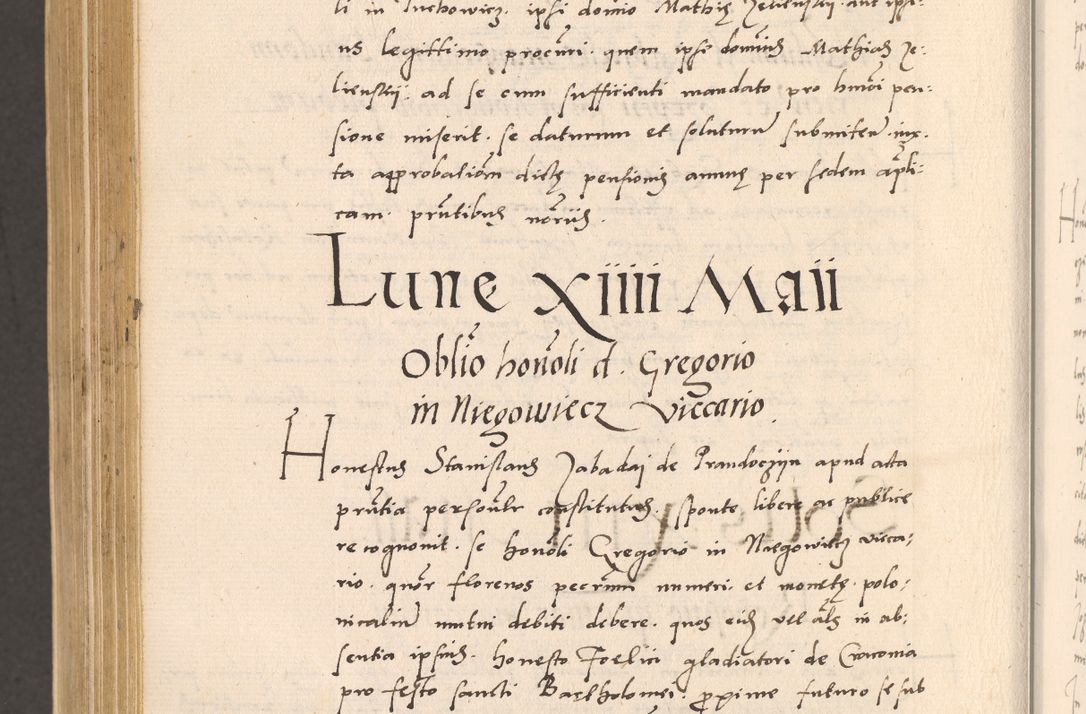 li in Tuchowicz. ipsi domino Mathiæ Zeliensky. aut ipsi-
us legittimo procuri. quem ipse dominus Mathias Ze-
liensky. ad se cum sufficienti mandato pro hmoi pen-
sione miserit. se daturum et soluturum submiten. iux-
ta approbationem dictę pensionis annuę per sedem apli-
cam. pntibus notriis.
Lune xiiii Maii
Oblio honoli d. Gregorio
in Niegowiecz Viccario.
Honestus Stanislaus Jabadaj de Prandoczyn apud acta
pntia personlr constitutus. sponte libere ac publice
recognouit. se honoli Gregorio in Niegowiecz vicca-
rio. quor florenos pecunii numeri. et monetę. polo-
nicalium mutui debiti debere. quos eid vel als in ab-
sentia ipsius. honesto Foelici gladiatori de Cracouia
pro festo sancti Bartholomei. proxime futuro se sub